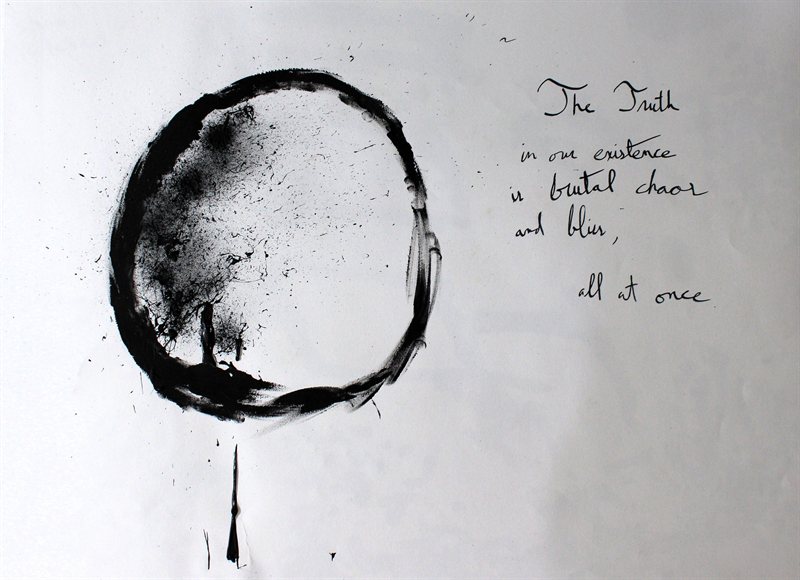 The Truth
in our existence
is brutal chaos
and bliss,
all at once